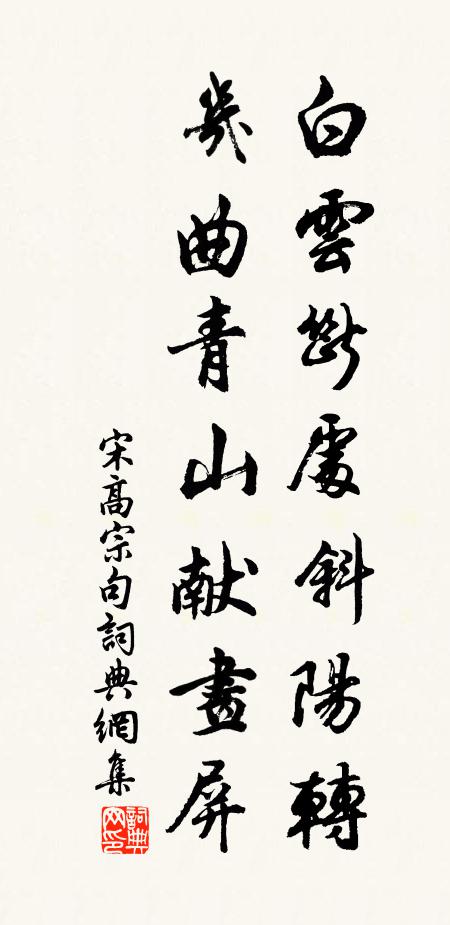 白雲斷處斜陽轉
幾曲青山献畫屏
宋高宗句詞典網集
詞典网印